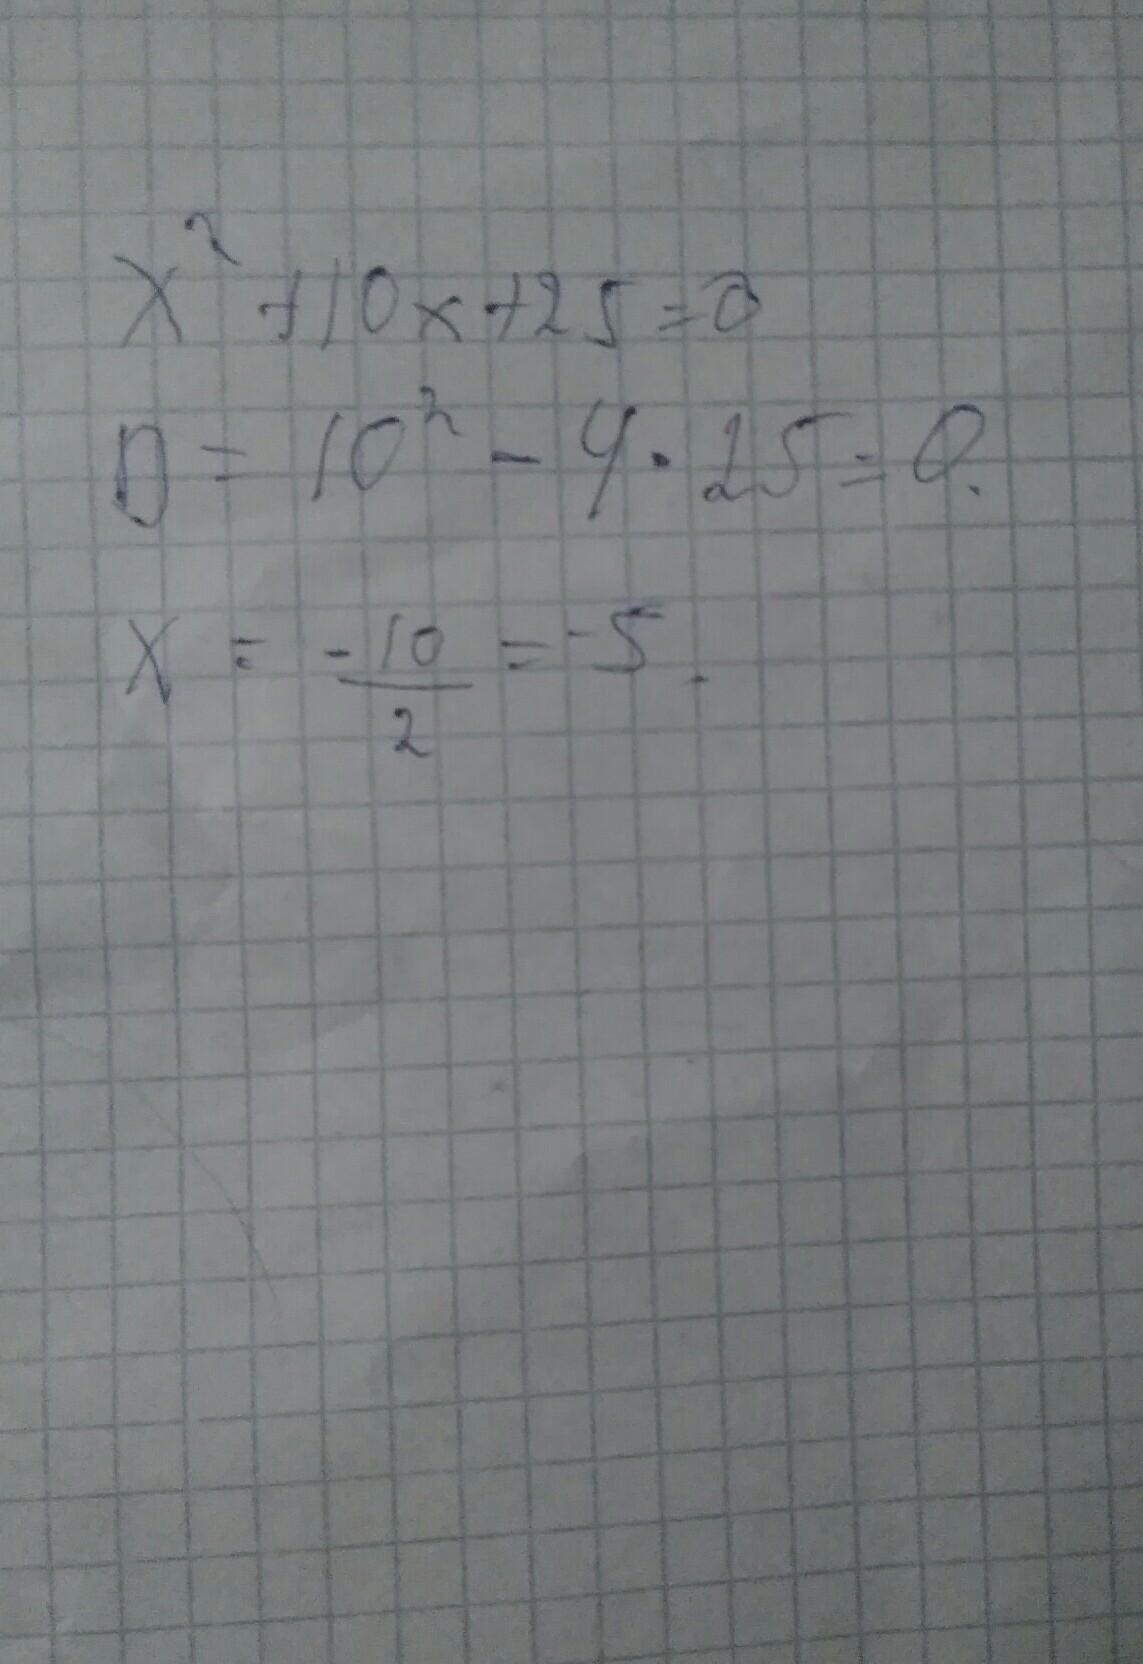 x² + 10x + 25 = 0
D = 10² - 4 · 25 = 0.
x = -10/2 = -5.